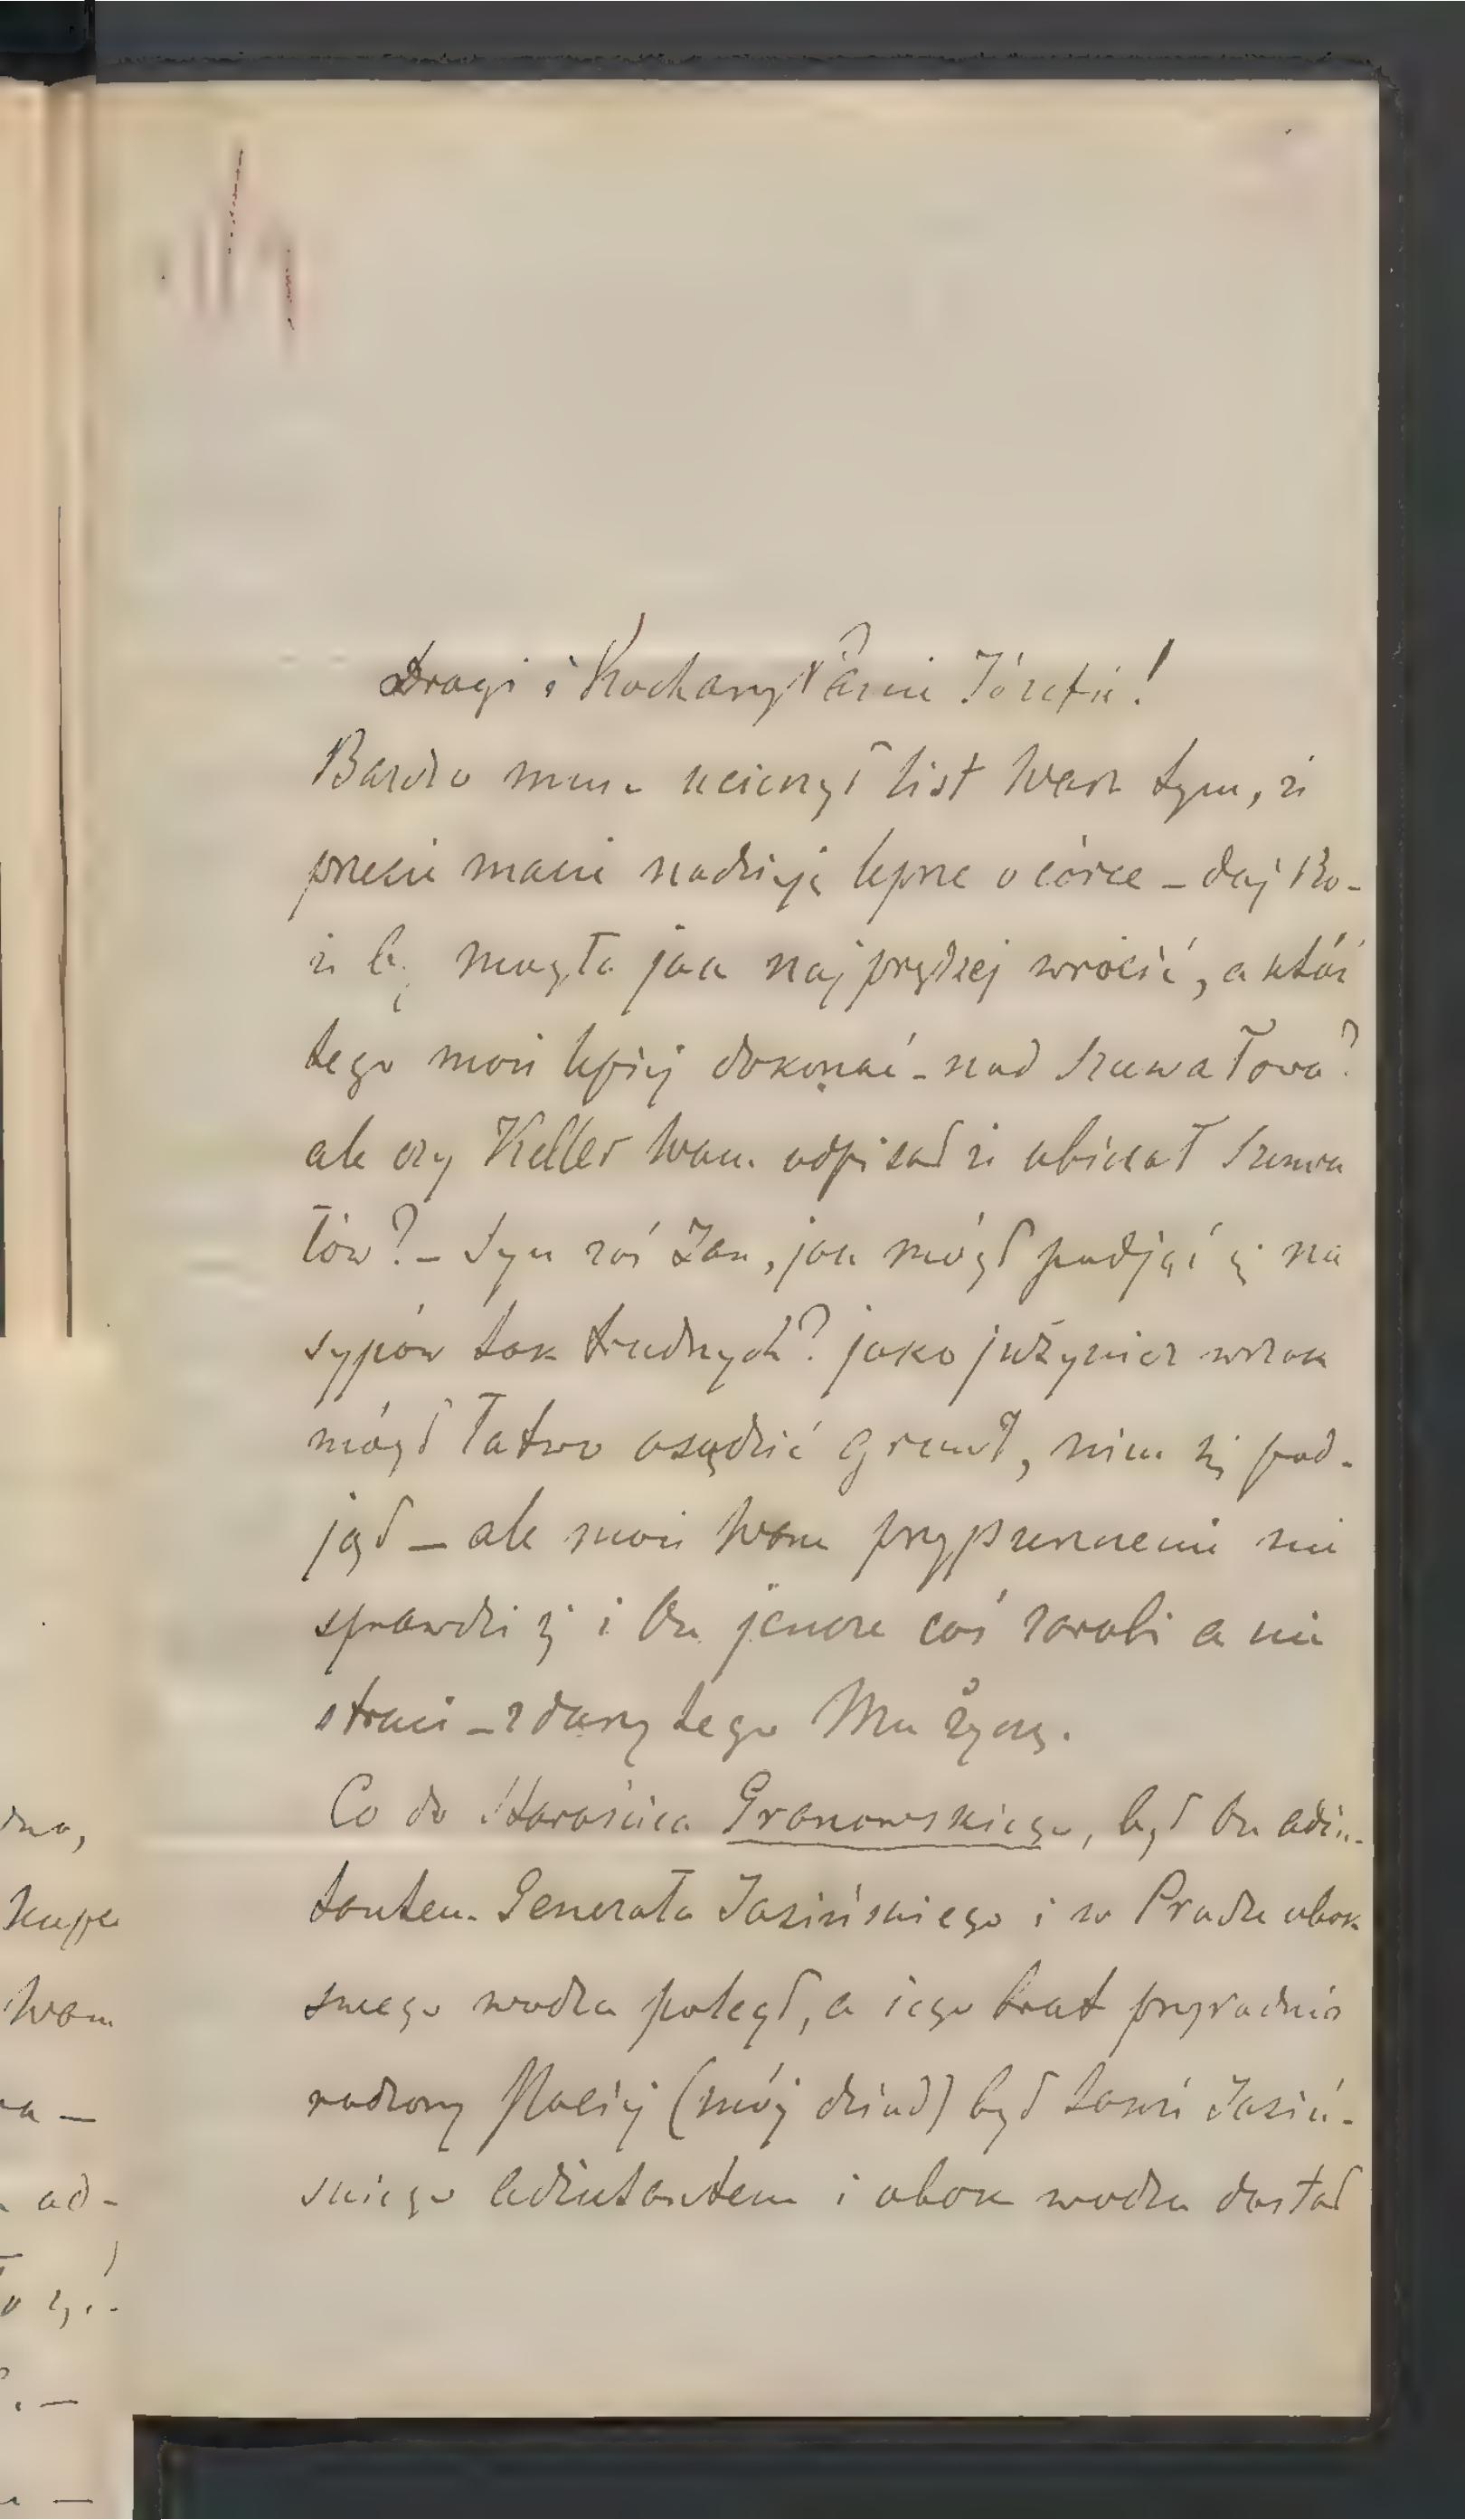 Drogi i Kochany Panie Józefie!
Bardzo mnie ucieszył list Wasz tym, że
przecie macie nadzieję lepsze o córce – daj Bo-
że by mogła jak najprędzej wrócić, a któż
tego może lepiej dokonać – nad Szuwałowa?
ale czy Keller Wam odpisał że obiecał Szuwa
łów? – Syn zaś Jan, jak mógł podjąć się na
sypów tak trudnych? jako jnżynier wszak
mógł łatwo osądzić grunt, nim się pod-
jął – ale może Wasze przypuszczenie nie
sprawdzi się i On jeszcze coś zarobi a nie
straci – z duszy tego Mu życzę.
Co do Starościca Granowskiego, był On adiu-
tantem Generała Jasińskiego i w Pradze obok
swego wodza poległ, a iego brat przyrodnio
rodzony Maciej (mój dziad) był także Jasiń-
skiego Adiutantem i obok wodza dostał
dno,
Kupe
Wam
ra –
ad-